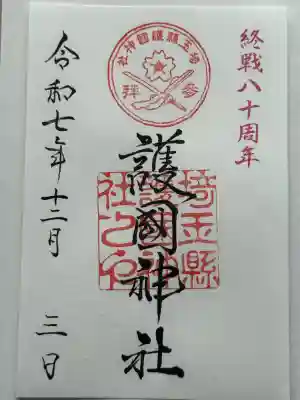 終戦八十周年
埼玉縣護國神社
参拝
護國神社
埼玉縣護國神社之印
令和七年十二月三日